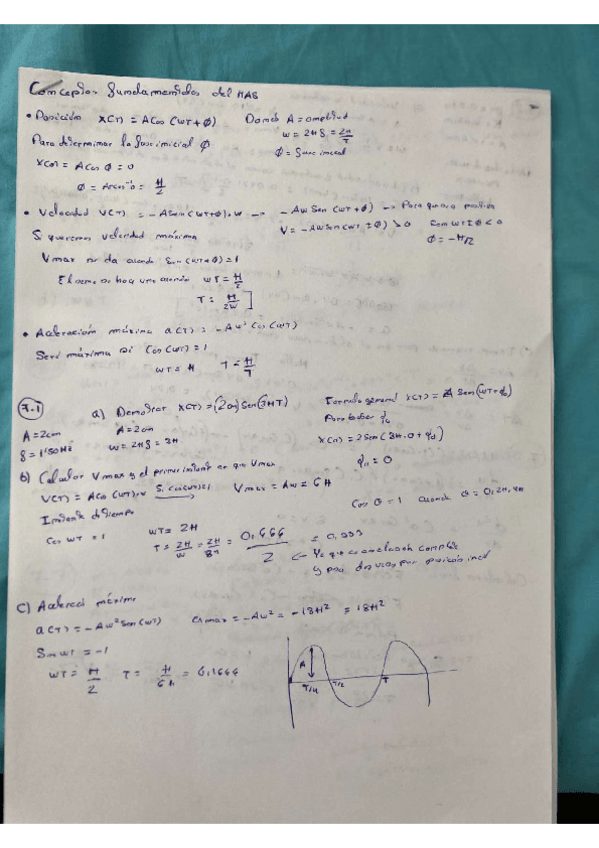 Conceptos fundamentales del MAS
• Posición X(T) = A Cos (WT + Ø) Donde A = amplitud
W = 2Πf = 2Π/T
Para determinar la fase inicial Ø
Ø = fase inicial
X(0) = A Cos Ø = 0
Ø = Arcos⁻¹0 = Π/2
• Velocidad V(T) = - A Sen (WT+Ø) . W → - AW Sen (WT + Ø) → Para que sea
Si queremos velocidad máxima V = - AW Sen (WT ± Ø) > 0 Sen WT ± Ø < 0
Ø = -Π/2
Vmax se da cuando Sen (WT + Ø) = 1
WT = Π/2
T = Π/2W ]
• Aceleración máxima a(T) = - AW² Cos (WT)
Será máxima si Cos (WT) = 1
WT = Π T = Π/T
7.1 a) Demostrar X(T) = (2cm) Sen (3ΠT) Formula general X(T) = A Sen (WT + φ₀)
A = 2cm A = 2cm Para saber φ₀
f = 1'50 Hz W = 2Πf = 3Π X(0) = 2 Sen (3Π . 0 + φ₀)
φ₀ = 0
b) Calcular Vmax y el primer instante en que Vmax
V(T) = A Cos (WT) . W Si Cos(WT) = 1 Vmax = AW = 6Π
Cos θ = 1 cuando θ = 0, 2Π, 4Π
Instante de tiempo
Cos WT = 1 WT = 2Π
T = 2Π/W = 2Π/3Π = 0,666/2 = 0,333
← Ya que es una oscilación completa
y pasa dos veces por
c) Aceleraci máxima
a(T) = - AW² Sen (WT) amax = - AW² = - 18Π² = 18Π²
Sin WT = -1
WT = Π/2 T = Π/6Π = 0,1666
A
T/4 T/2 T